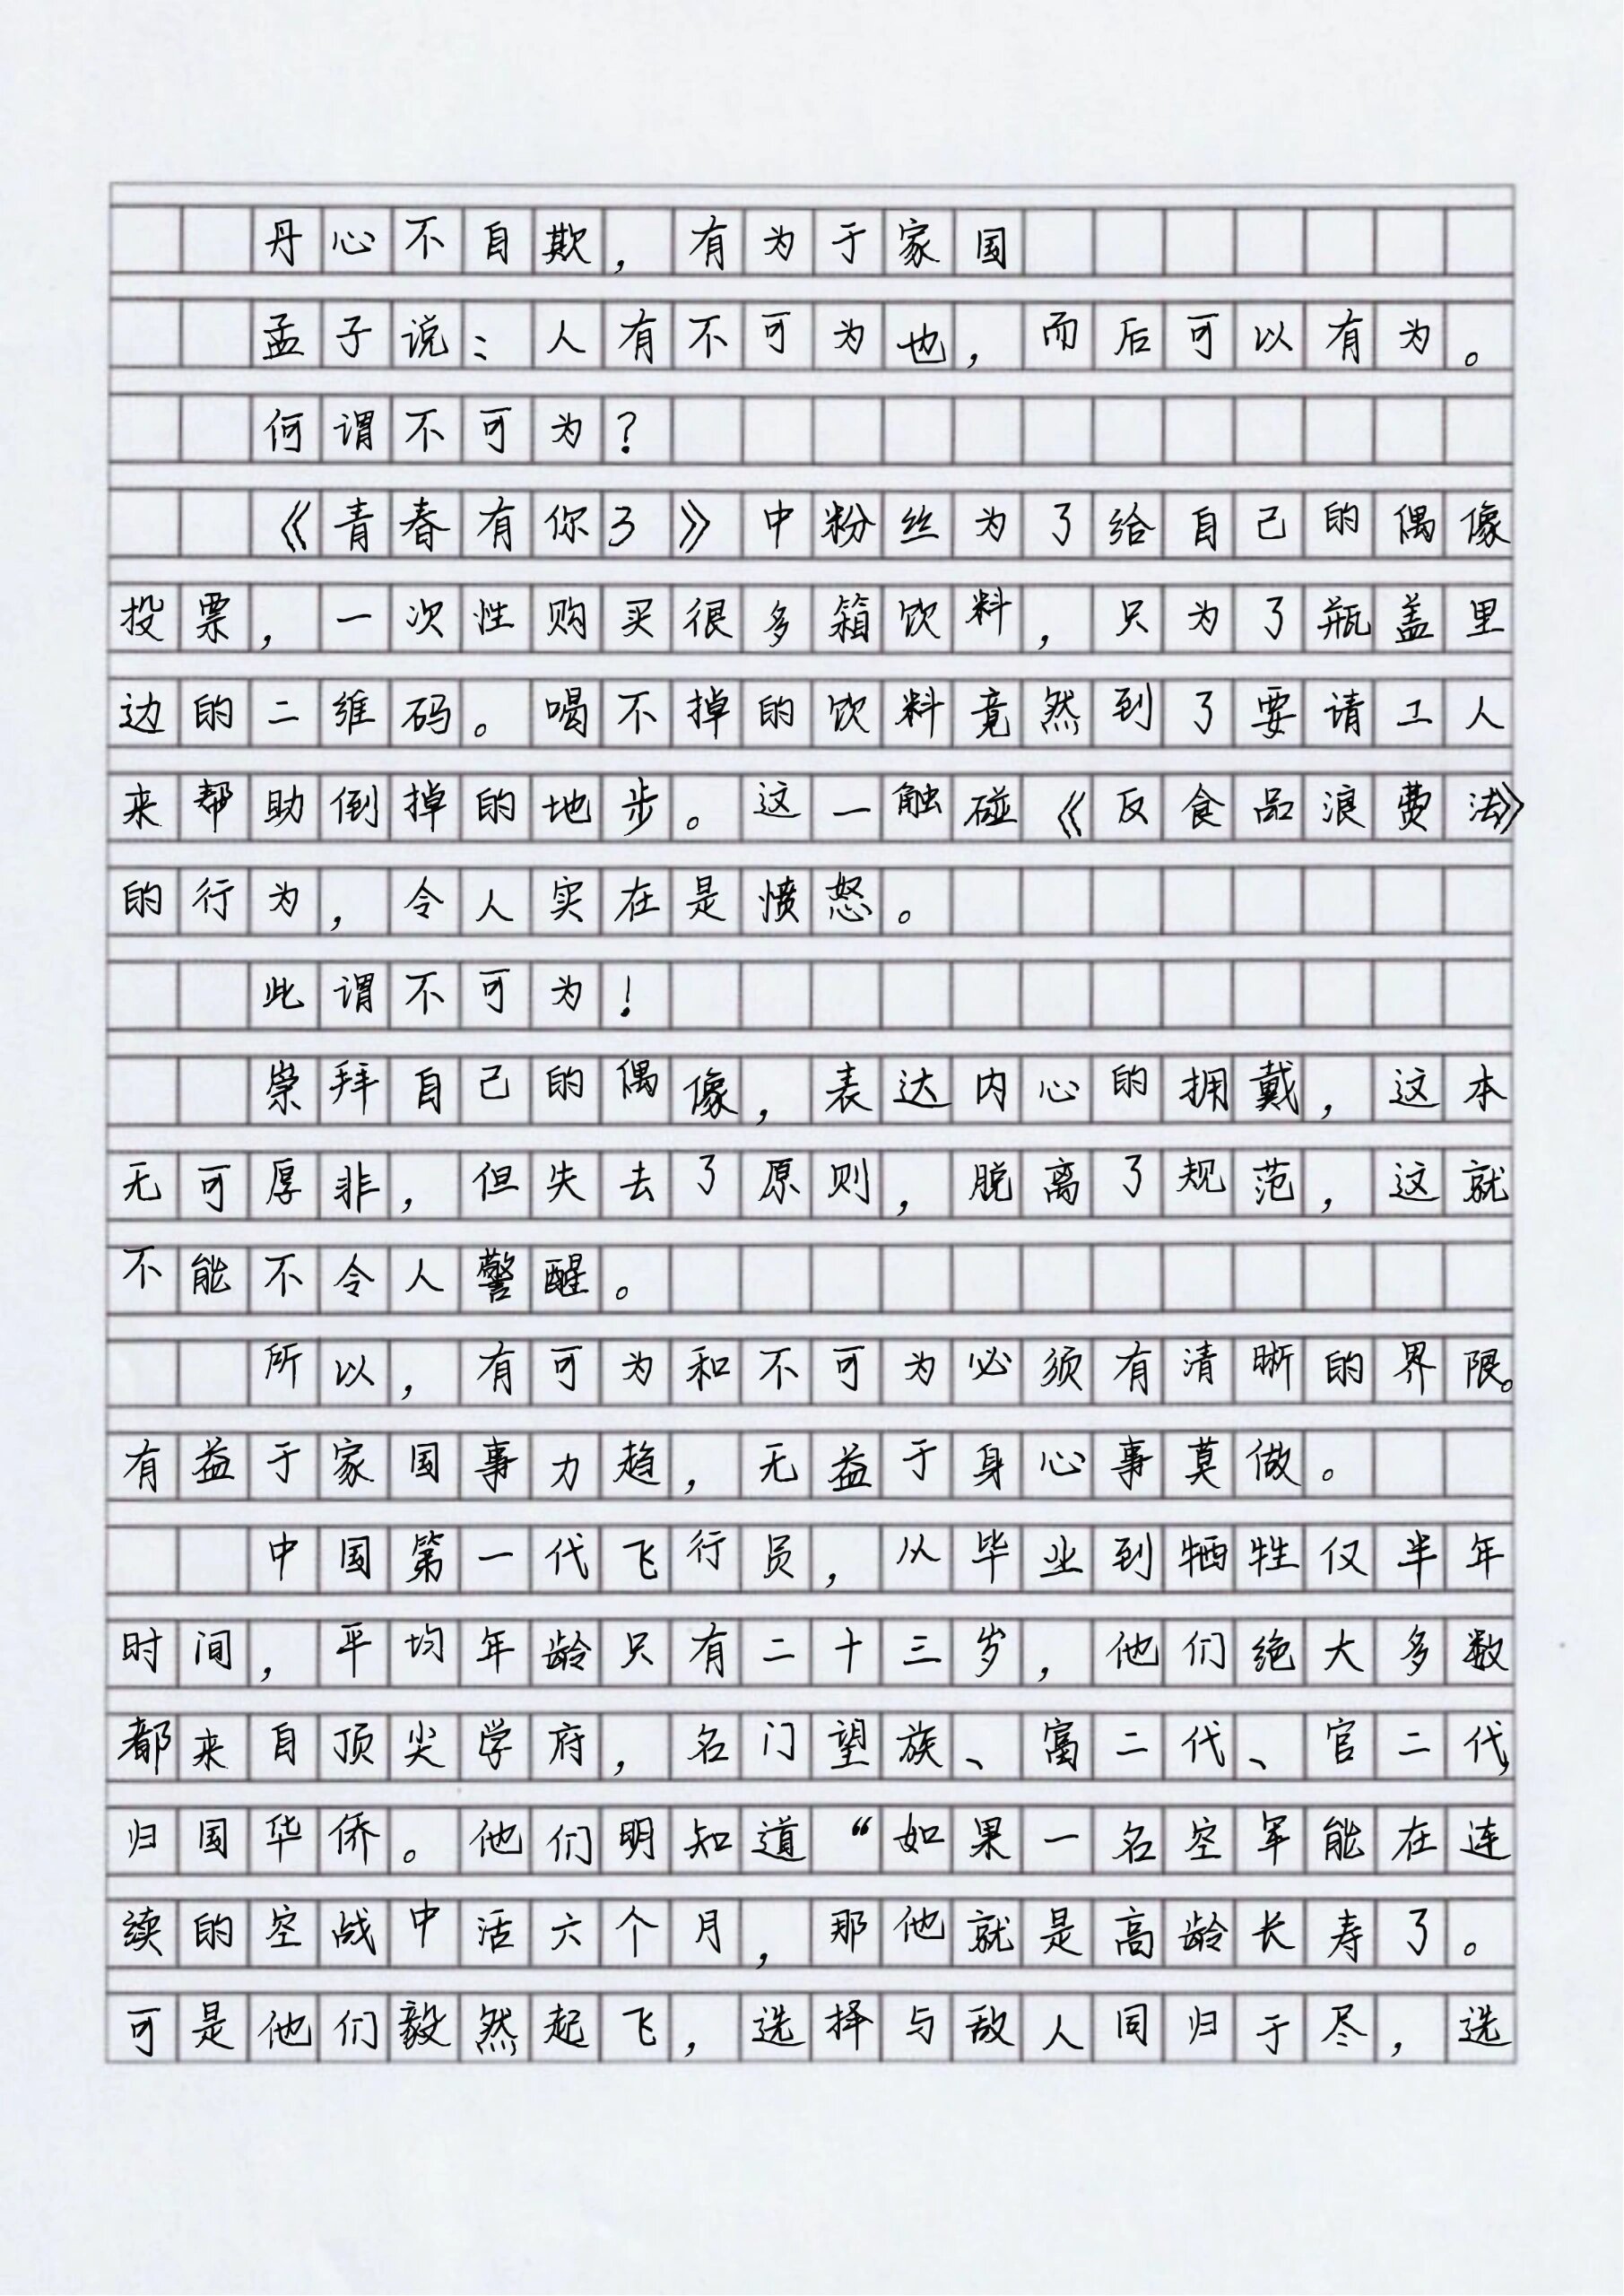 丹心不自欺，有为于家国
孟子说：人有不可为也，而后可以有为。
何谓不可为？
《青春有你3》中粉丝为了给自己的偶像
投票，一次性购买很多箱饮料，只为了瓶盖里
边的二维码。喝不掉的饮料竟然到了要请工人
来帮助倒掉的地步。这一触碰《反食品浪费法》
的行为，令人实在是愤怒。
此谓不可为！
崇拜自己的偶像，表达内心的拥戴，这本
无可厚非，但失去了原则，脱离了规范，这就
不能不令人警醒。
所以，有可为和不可为必须有清晰的界限。
有益于家国事力趋，无益于身心事莫做。
中国第一代飞行员，从毕业到牺牲仅半年
时间，平均年龄只有二十三岁，他们绝大多数
都来自顶尖学府，名门望族、富二代、官二代，
归国华侨。他们明知道“如果一名空军能在连
续的空战中活六个月，那他就是高龄长寿了。
可是他们毅然起飞，选择与敌人同归于尽，选